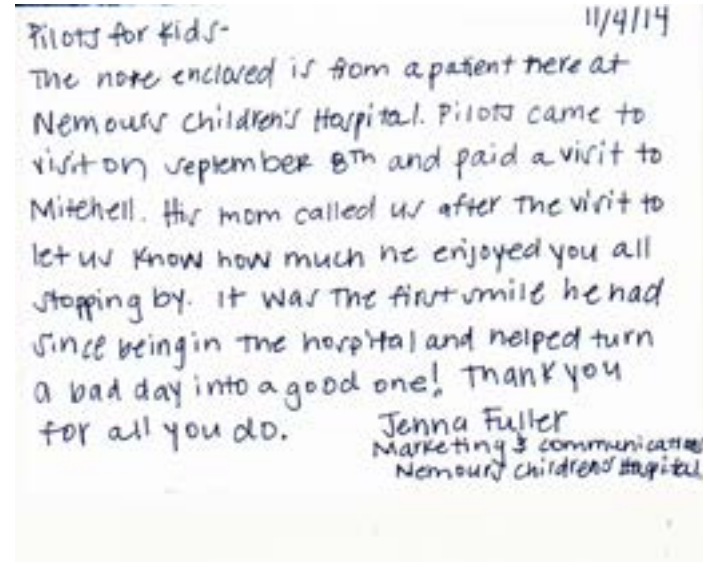 11/4/14
Pilots for Kids-
The note enclosed is from a patient here at
Nemours Children's Hospital. Pilots came to
visit on September 8TH and paid a visit to
Mitchell. His mom called us after the visit to
let us know how much he enjoyed you all
stopping by. It was the first smile he had
since being in the hospital and helped turn
a bad day into a good one! Thank you
for all you do.
Jenna Fuller
Marketing & Communications
Nemours Children's Hospital